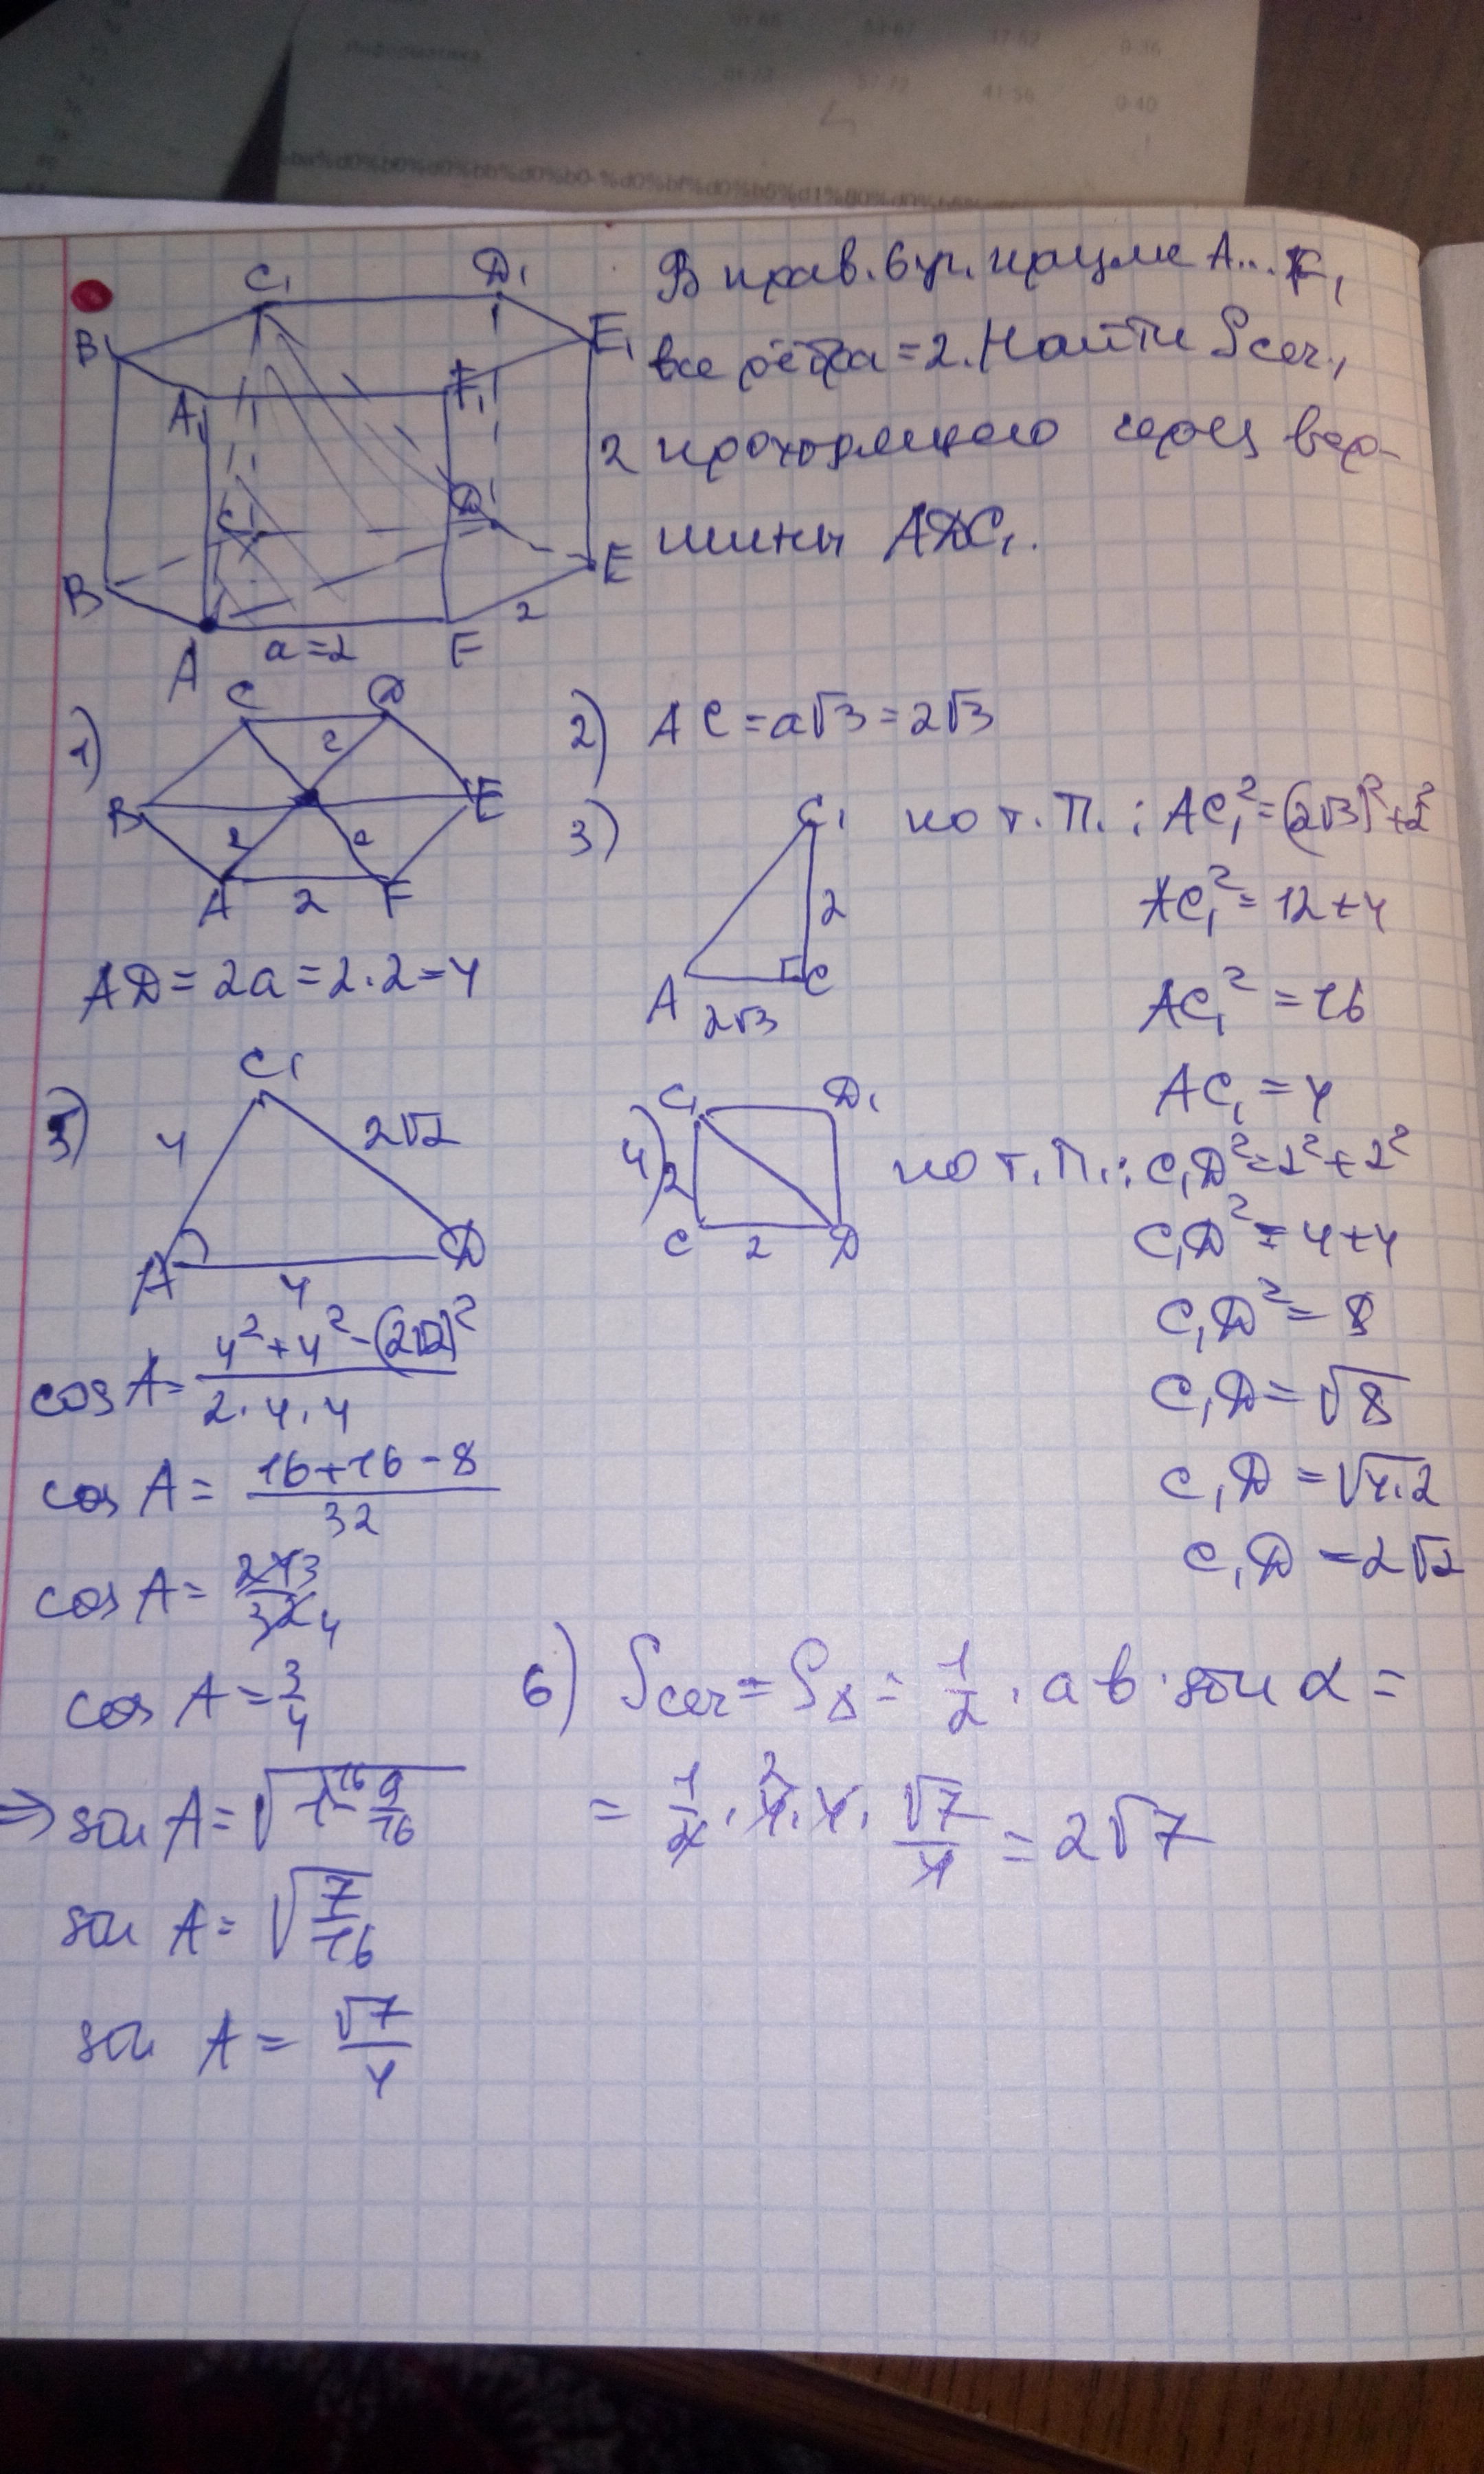 Информатика
57-72 41-56 0-40
37-52 0-36
В прав. 6уг. призме A...F₁
все рёбра = 2. Найти Sсеч,
проходящего через вер-
шины ADC₁.
C₁ D₁
B₁ E₁
A₁ F₁
2
C D
B E
2
A a=2 F
1)
C D
2
B E
2 2
A 2 F
AD = 2a = 2·2 = 4
2) AC = a√3 = 2√3
3)
C₁
2
A C
2√3
по т. П.: AC₁² = (2√3)² + 2²
AC₁² = 12 + 4
AC₁² = 16
AC₁ = 4
4)
C₁ D₁
2
C 2 D
по т. П.: C₁D² = 2² + 2²
C₁D² = 4 + 4
C₁D² = 8
C₁D = √8
C₁D = √4·2
C₁D = 2√2
5)
C₁
4 2√2
A D
4
cos A = (4² + 4² - (2√2)²) / (2·4·4)
cos A = (16 + 16 - 8) / 32
cos A = 24 3 / 32 4
cos A = 3/4
⇒ sin A = √(1 16 - 9/16)
sin A = √(7/16)
sin A = √7/4
6) Sсеч = S∆ = 1/2 · ab · sin α =
= 1/2 · 4 2 · 4 · √7/4 = 2√7